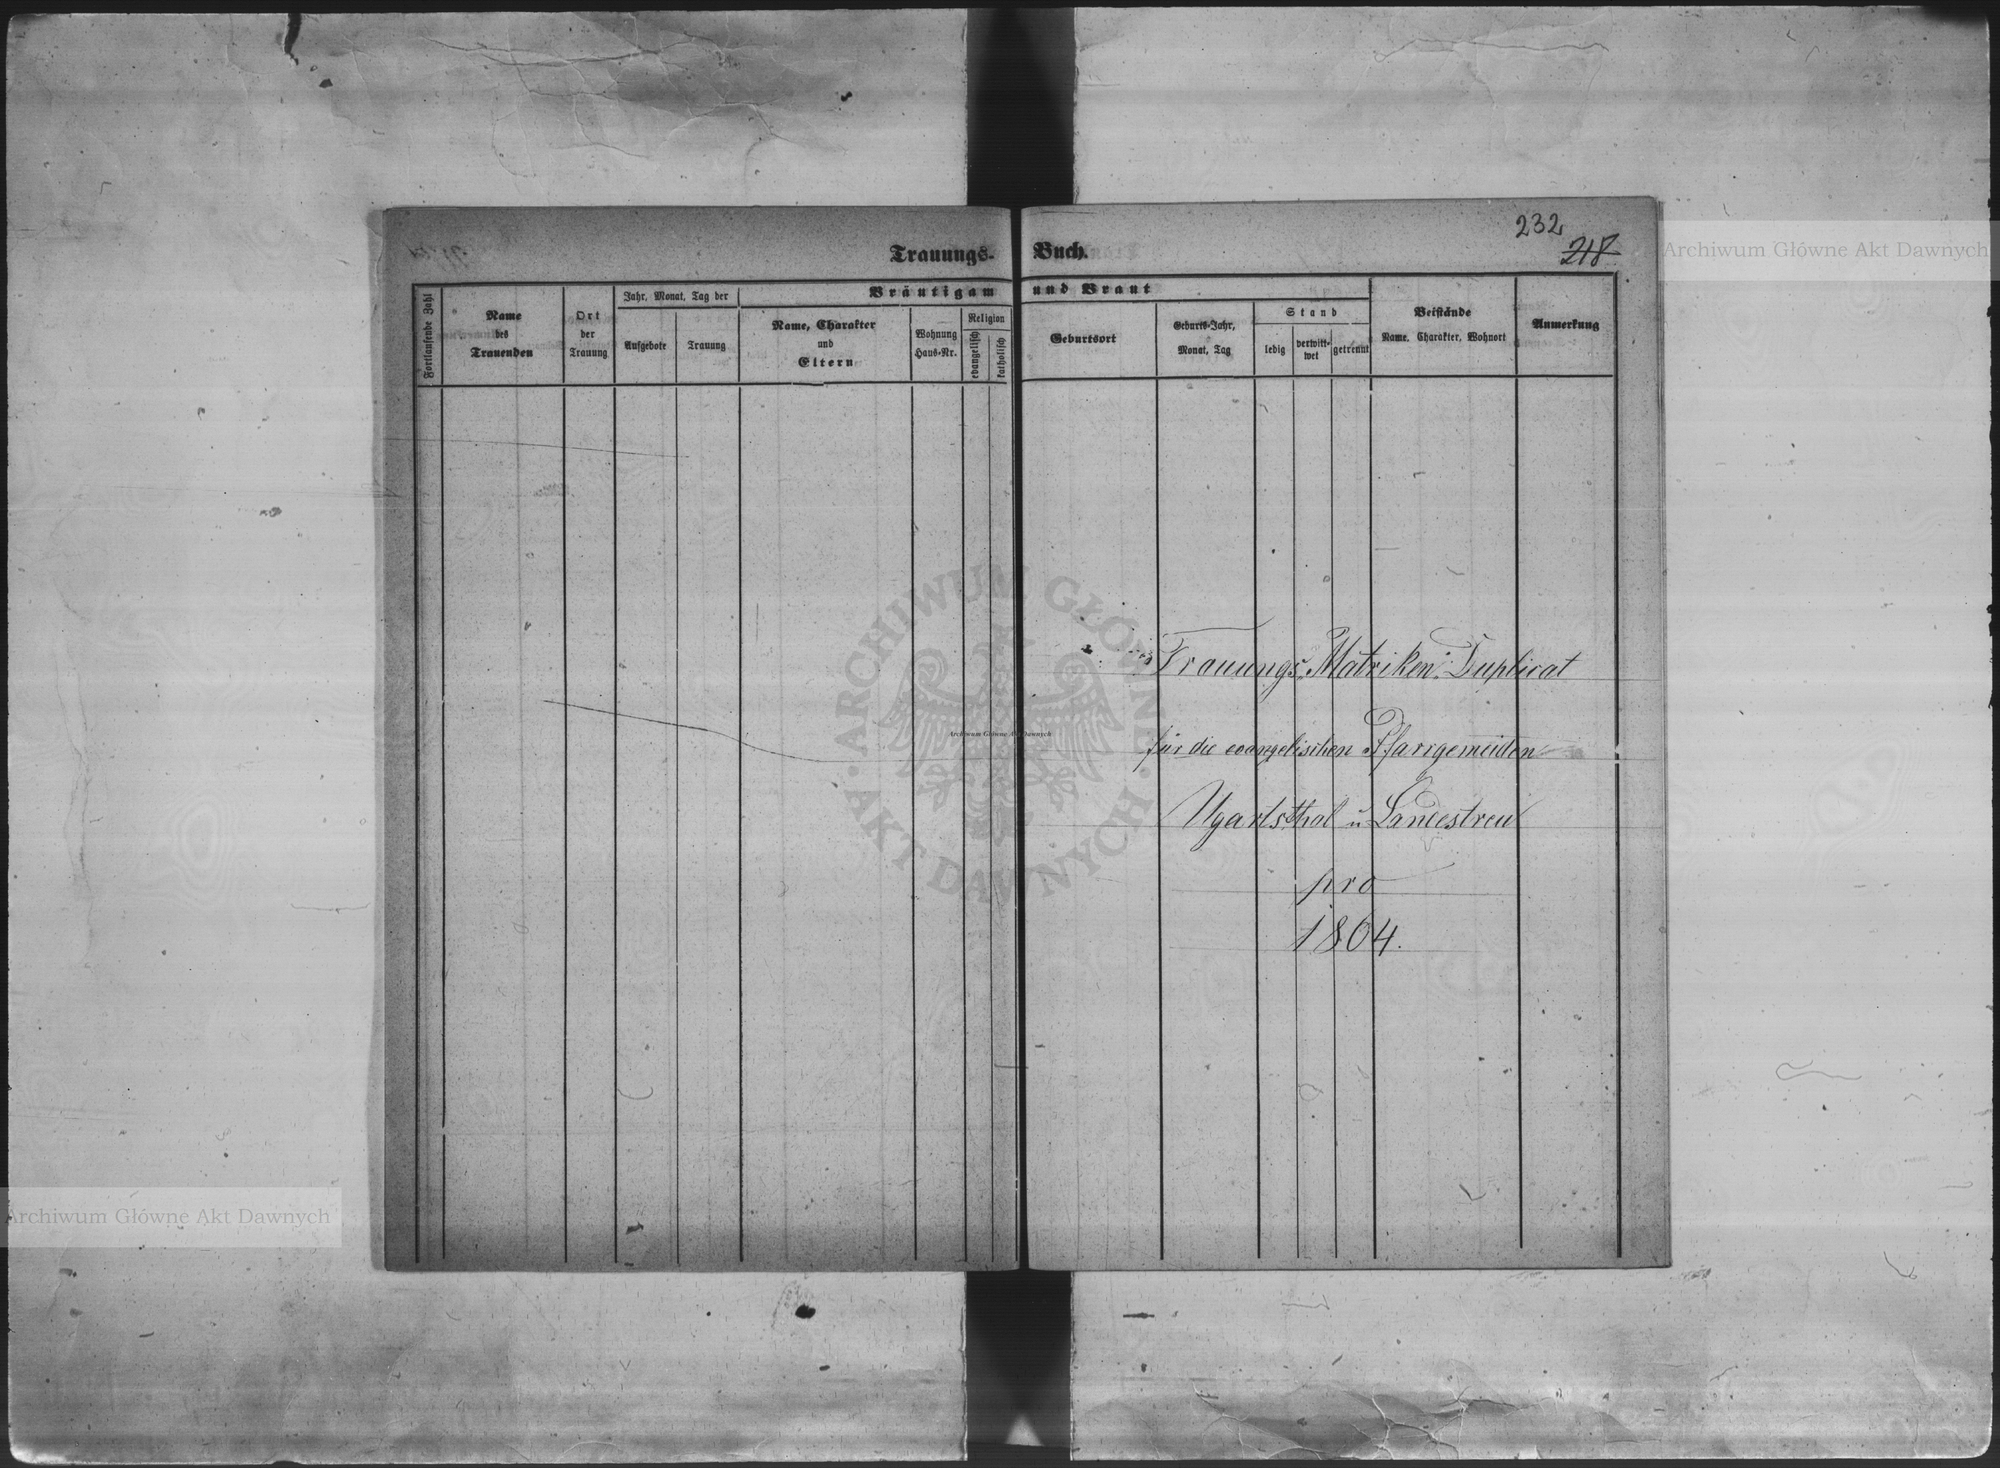 232
218
Trauungs- Buch.
Fortlaufende Zahl
Name
des
Trauenden
Ort
der
Trauung
Jahr, Monat, Tag der
Aufgebote
Trauung
Bräutigam und Braut
Name, Charakter
und
Eltern
Wohnung
Haus-Nr.
Religion
evangelisch
katholisch
Geburtsort
Geburts-Jahr,
Monat, Tag
Stand
ledig
verwitt-
wet
getrennt
Beistände
Name, Charakter, Wohnort
Anmerkung
Trauungs-Matriken-Duplicat
für die evangelischen Pfarrgemeiden
Ugartsthal u. Landestreu
pro
1864.
Archiwum Główne Akt Dawnych
ARCHIWUM GŁÓWNE · AKT DAWNYCH ·
Archiwum Główne Akt Dawnych
Archiwum Główne Akt Dawnych